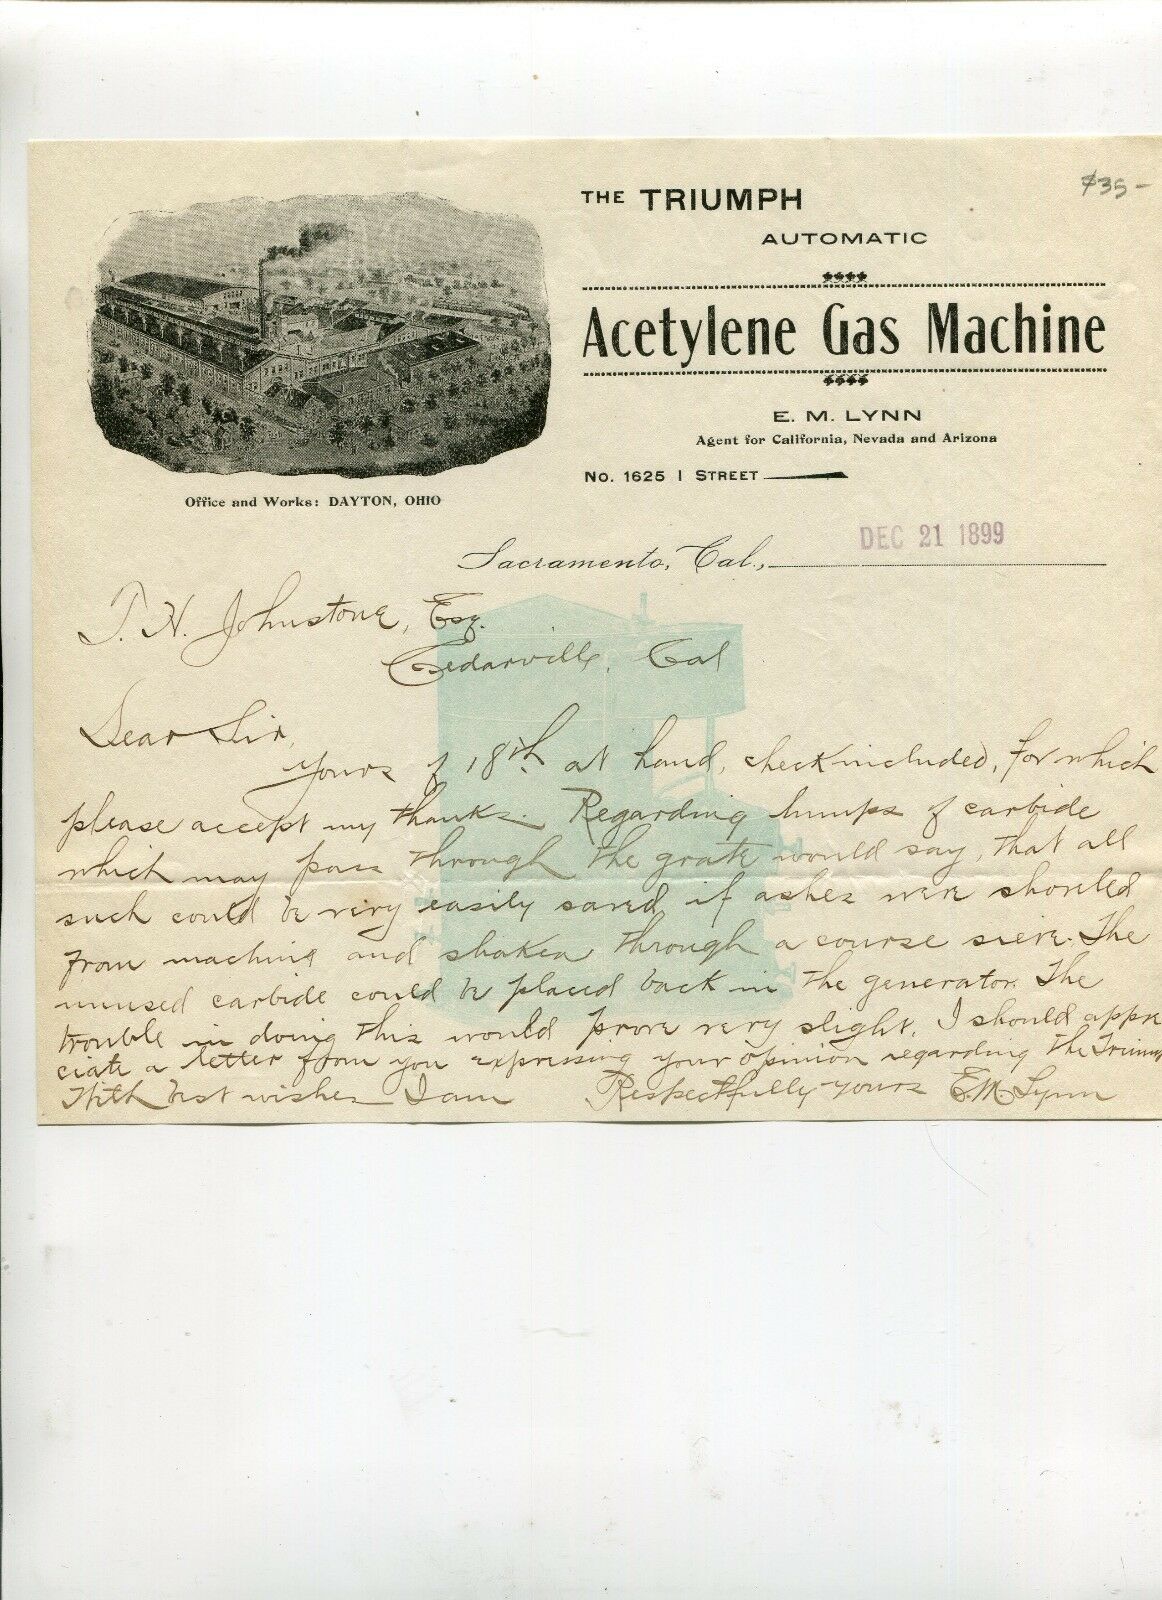 $35-
THE TRIUMPH
AUTOMATIC
Acetylene Gas Machine
E. M. LYNN
Agent for California, Nevada and Arizona
No. 1625 I STREET
Office and Works: DAYTON, OHIO
DEC 21 1899
Sacramento, Cal.,
T. H. Johnstone, Esq.
Cedarville, Cal
Dear Sir,
Yours of 18th at hand, check included, for which
please accept my thanks. Regarding lumps of carbide
which may pass through the grate would say, that all
such could be very easily saved if ashes were shoveled
from machine and shaken through a course sieve. The
unused carbide could be placed back in the generator. The
trouble in doing this would prove very slight. I should appre
ciate a letter from you expressing your opinion regarding the Trium
With best wishes I am Respectfully yours E.M. Lynn